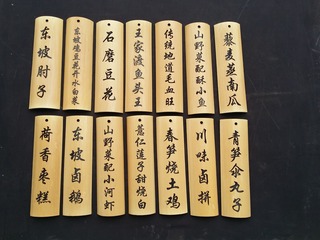 东坡肘子
东坡鸡豆花开水白菜
石磨豆花
王家渡鱼头王
传统地道毛血旺
山野菜配酥小鱼
藜麦蒸南瓜
荷香枣糕
东坡卤鹅
山野菜配小河虾
薏仁莲子甜烧白
春笋烧土鸡
川味卤拼
青笋汆丸子